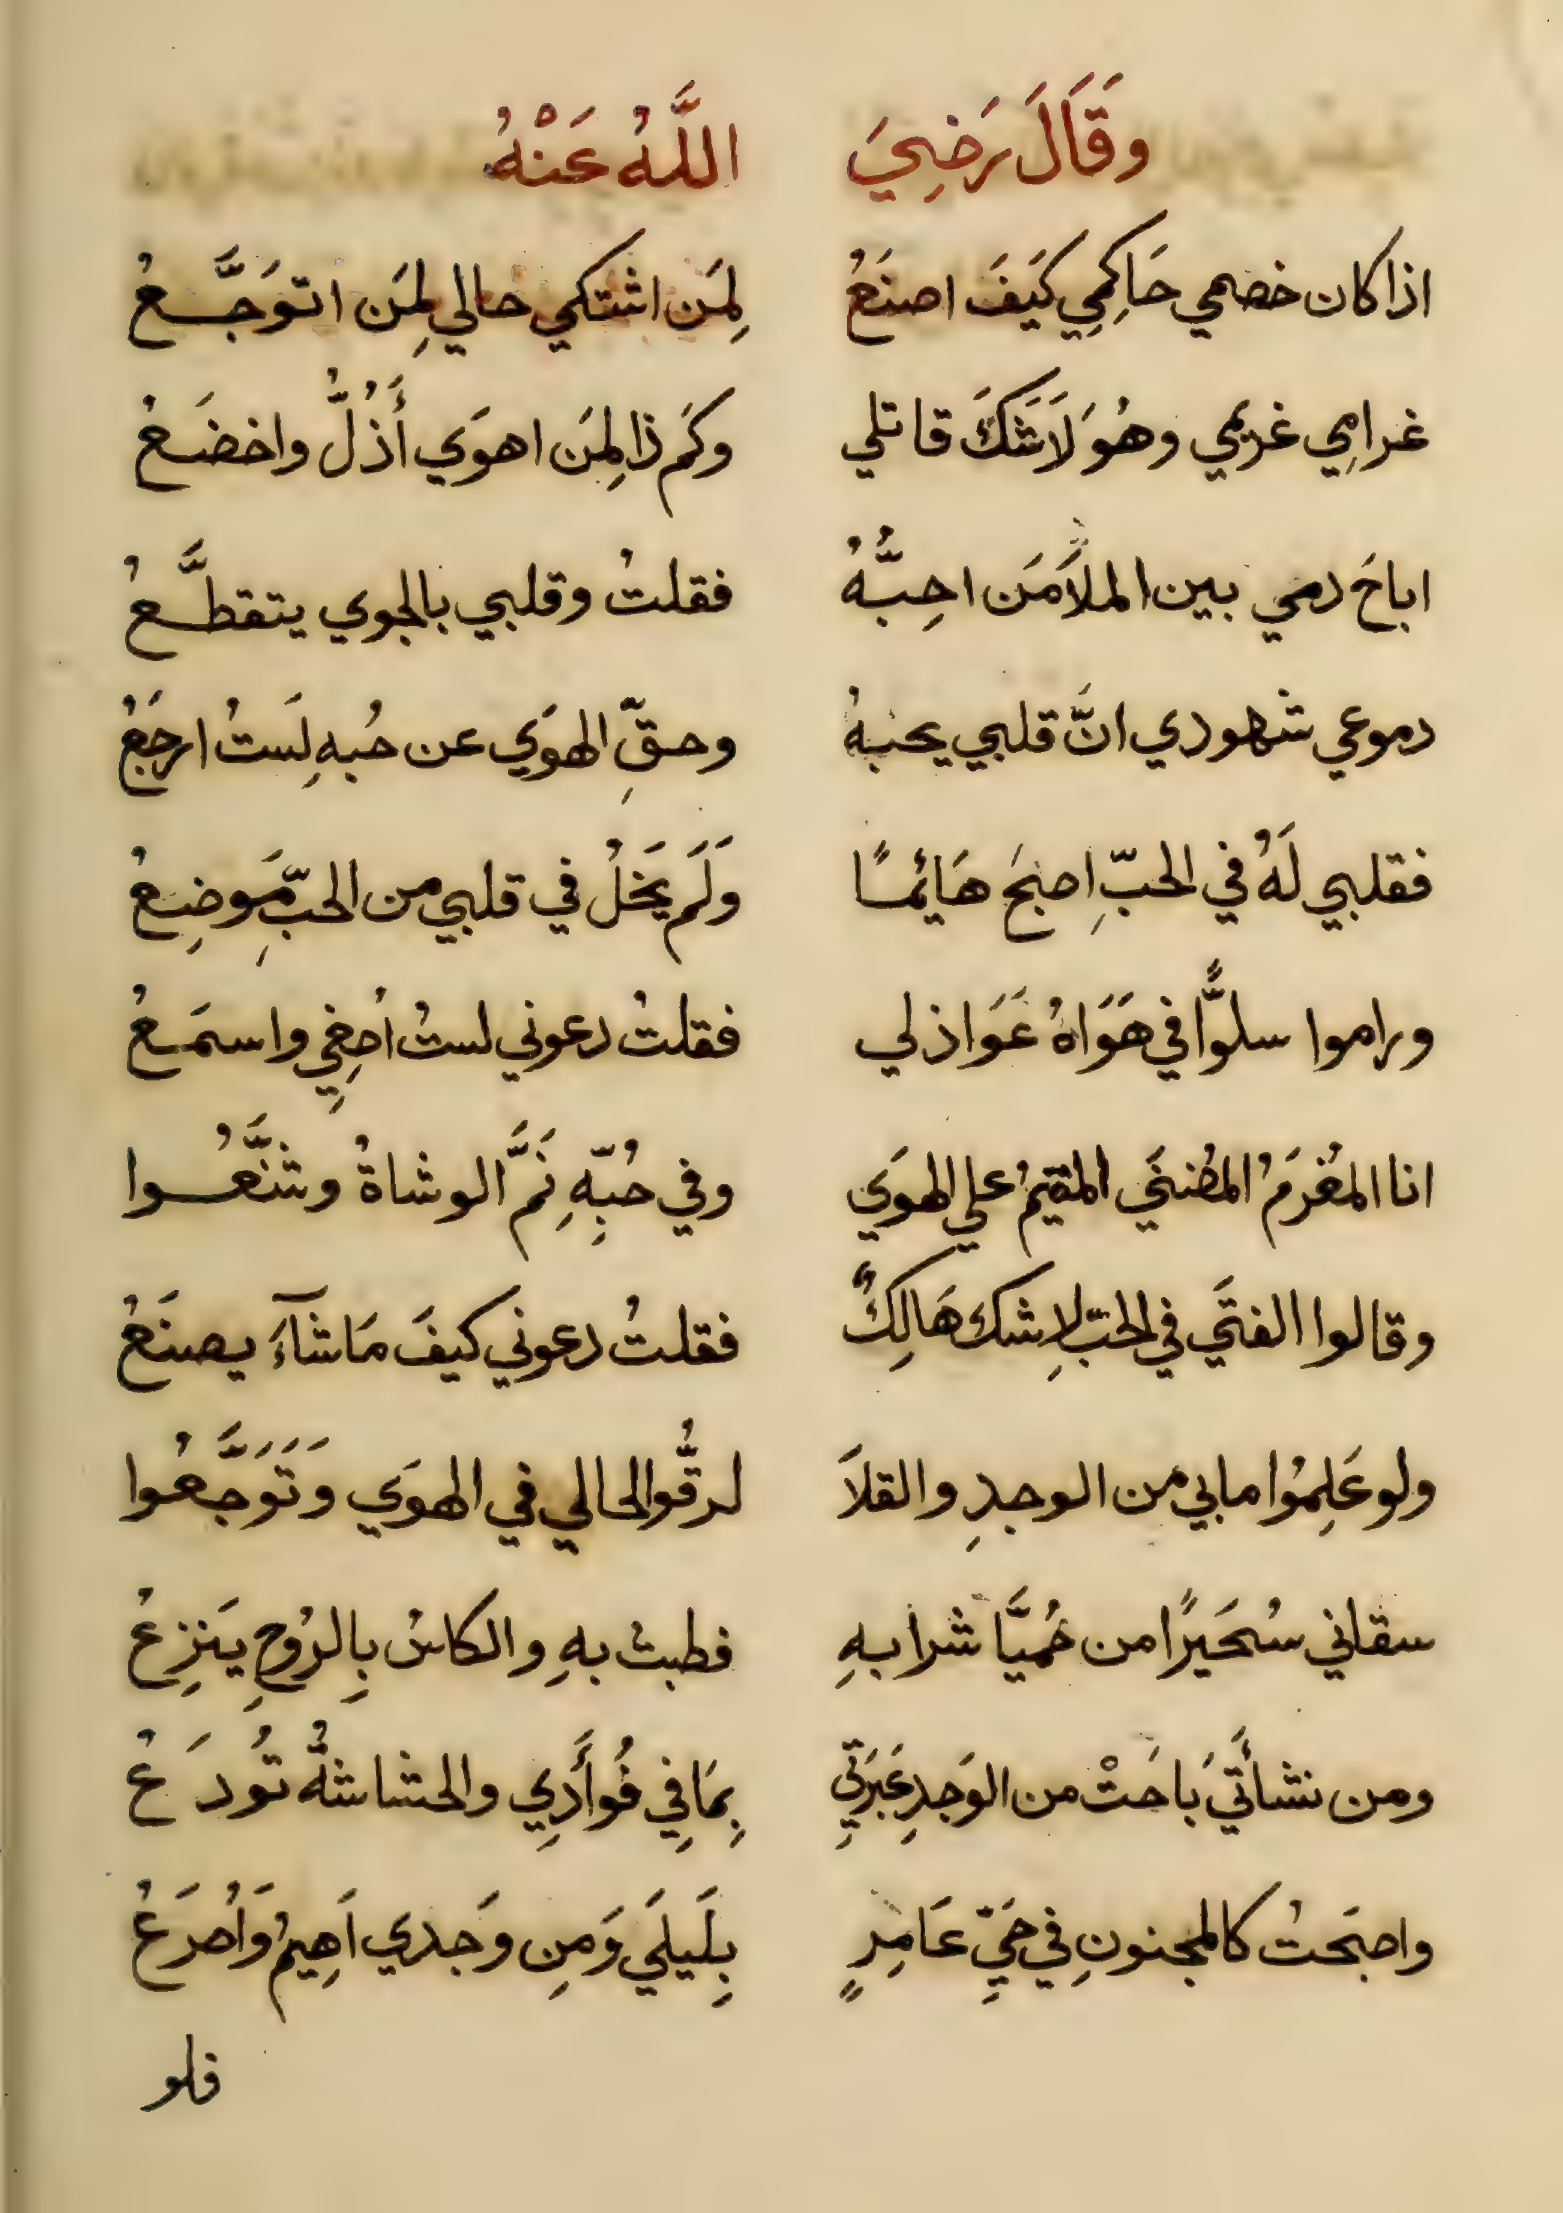 وَقَالَ رَضِيَ اللَّهُ عَنْهُ
اذا كان خصمي حَاكِمِي كَيَفَ اصنَعُ لِمَن اشتكي حالي لِمَن اتوَجَّعُ
غرامِي غريمي وهُوَ لَا شَكَّ قاتلي وكَم ذا لِمَن اهوَي أَذُلُّ واخضَعُ
اباحَ دمي بين الملاَ مَن احِبُّهُ فقلتُ وقلبي بالجوي يتقطَّعُ
دموعي شهودي انَّ قلبي يحبهُ وحقِّ الهوَي عن حُبهِ لَستُ ارجَعُ
فقلبي لَهُ في الحبِّ اصبحَ هَائِمًا وَلَم يَخلُ في قلبي من الحبِّ مَوضِعُ
وراموا سلوًّا في هَوَاهُ عَوَاذلي فقلتُ دعوني لستُ اُصغِي واسمَعُ
انا المغُرَمُ المُضنَي المقيمُ علي الهوَي وفي حُبِّهِ نَمَّ الوشاةُ وشَنَّعُوا
وقالوا الفتَي في الحبِّ لا شك هَالِكٌ فقلتُ دعوني كيفَ مَا شَآءَ يصنَعُ
ولو عَلِموُا ما بي من الوجدِ والقلاَ لرقُّوا لحالي في الهوَي وَتَوَجَّعُوا
سقاني سُحَيرًا من حُميَّا شرابهِ فطبتُ بهِ والكاسُ بِالرُوحِ يَنزِعُ
ومن نشأَتي بَاحَتْ من الوَجدِ عَبرَتِي بِمَا فِي فُوأَدِي والحشاشةُ تُودَعُ
واصبَحتُ كالمجنونِ فِي حَيِّ عَامِرٍ بِلَيلَي وَمِن وَجدي اَهِيمُ وَاُصرَعُ
فلو